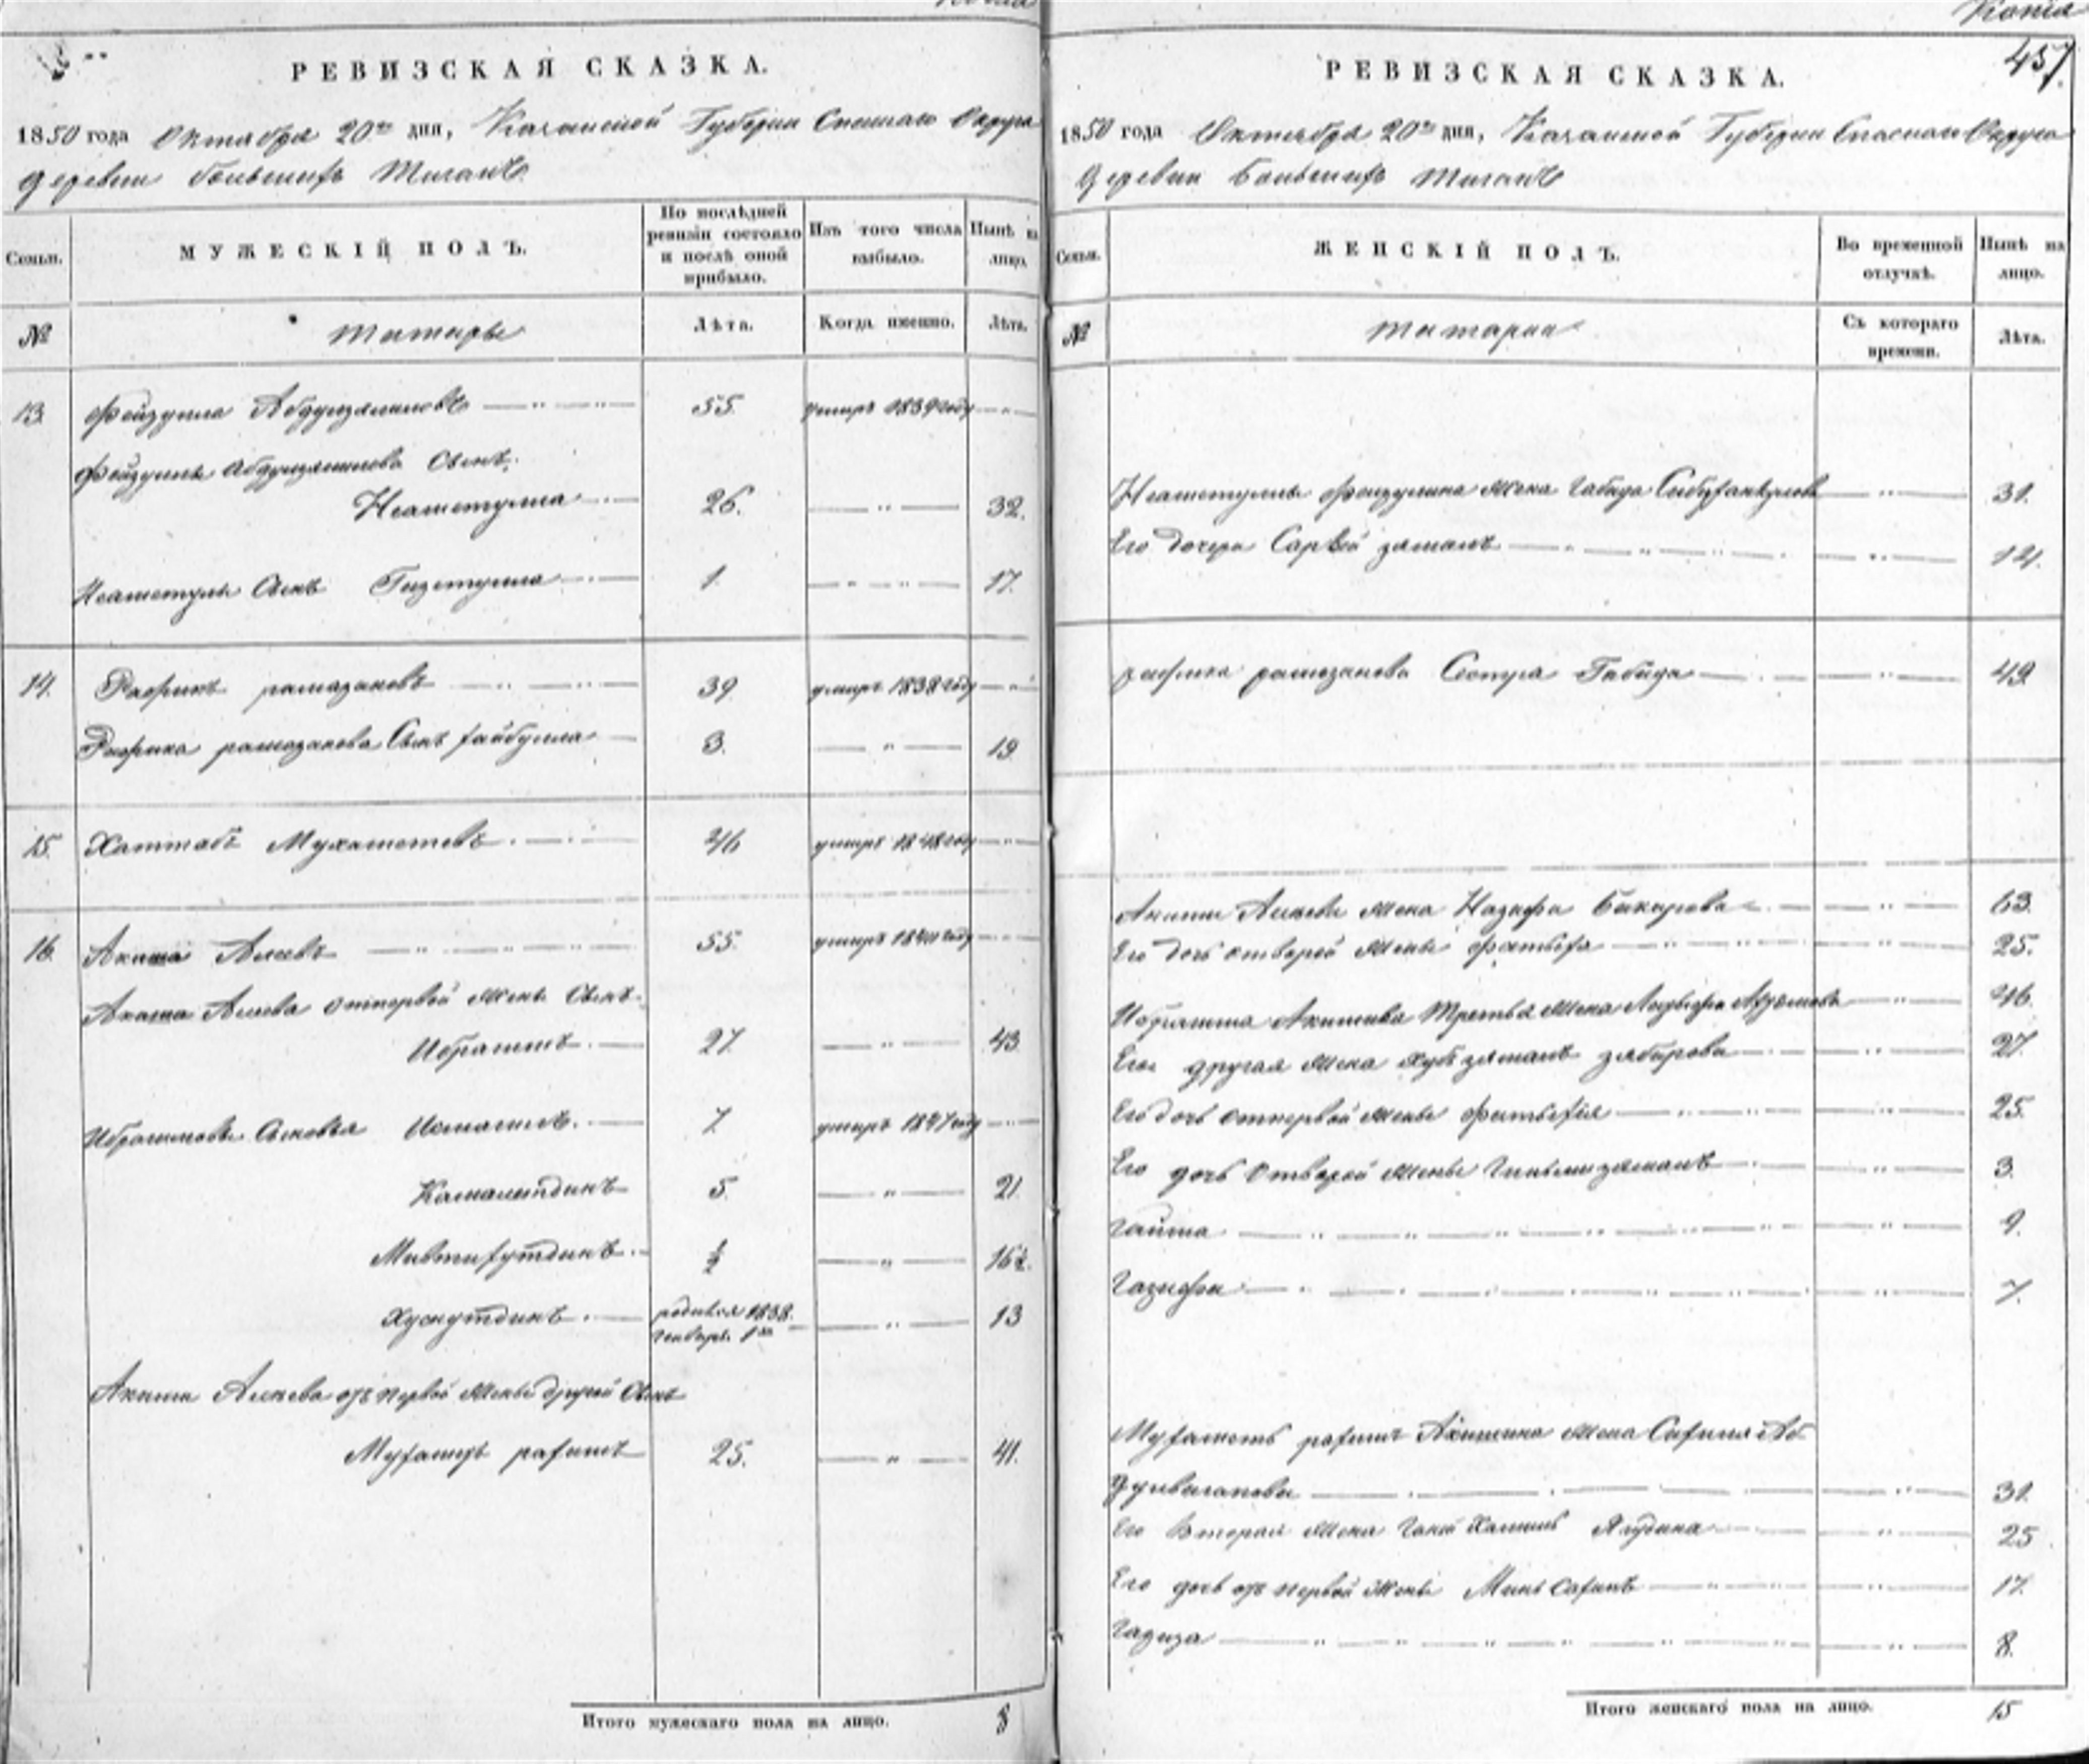 Копія
РЕВИЗСКАЯ СКАЗКА.
1850 года Октября 20го дня, Казанской Губерніи Спаскаго Округа
деревни Большихъ Тиганъ
Семьи. МУЖЕСКІЙ ПОЛЪ. По послѣдней ревизіи состояло и послѣ оной прибыло. Изъ того числа выбыло. Нынѣ на лицо.
№ Татары Лѣта. Когда именно. Лѣта.
13. Фейзулла 55. умиръ 1839 году
Фейзуллы Сынъ:
Неаметулла 26. 32.
Неаметуллы Сынъ Гизетулла 1. 17.
14. Рафикъ рамазановъ 39. умиръ 1838 году
Рафика рамазанова Сынъ хайбулла 3. 19.
15. Хаттабъ Мухаметевъ 46 умиръ 1848 году
16. Акиша Алкевъ 55. умиръ году
Акиша Алкева отпервой жены Сынъ
Ибрагимъ 27. 43.
Ибрагимовы Сыновья Исмагилъ 7. умиръ 1847 году
Камалетдинъ 5. 21.
Мивтихутдинъ ½ 16½.
Хуснутдинъ родился 1838. генваря 1го 13
Акиши Алкева отъ первой жены другой Сынъ
Мухаметъ рахимъ 25. 41.
Итого мужескаго пола на лицо. 8
Копія
457.
РЕВИЗСКАЯ СКАЗКА.
1850 года Октября 20го дня, Казанской Губерніи Спаскаго Округа
деревни Большихъ Тиганъ
Семьи. ЖЕНСКІЙ ПОЛЪ. Во временной отлучкѣ. Нынѣ на лицо.
№ Татарки Съ котораго времени. Лѣта.
Неаметуллы Фейзуллина жена Габида 31.
Его дочери Сарвій заманъ 14.
рафика рамазанова Сестра Габида 49.
Акиши Алкева жена Назифа Бикирова 63.
Его дочь отвторой жены Фатыха 25.
Ибрагима Акишева Третья жена 46.
Его другая жена Хубъзяманъ зябирова 27.
Его дочь отпервой жены 25.
Его дочь отвторой жены 3.
Гайша 9.
Газифа 7.
Мухаметъ рахима Акишина жена Сафиля Аб
31.
Его вторая жена 25
Его дочь отъ первой жены Минь Сафикъ 17.
Гадиза 8.
Итого женскаго пола на лицо. 15